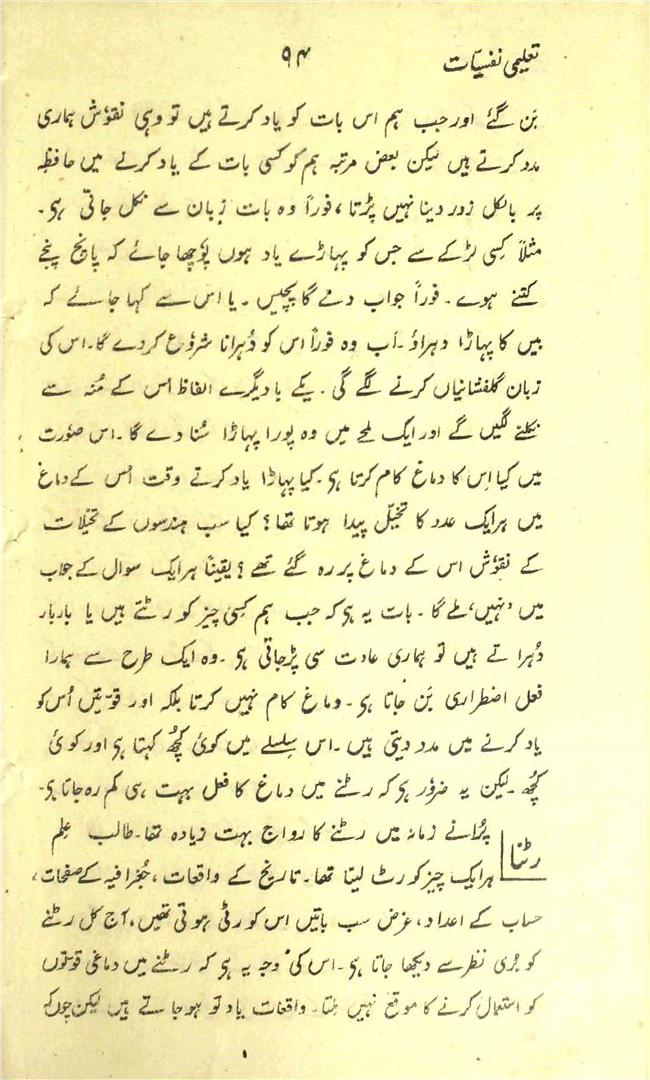 تعلیمی نفسیّات
۹۴
بَن گئے اور جب ہم اس بات کو یاد کرتے ہیں تو وہی نقوٗش ہماری
مدد کرتے ہیں لیکن بعض مرتبہ ہم کو کسی بات کے یاد کرنے میں حافظہ
پر بالکل زور دینا نہیں پڑتا، فوراً وہ بات زبان سے نکل جاتی ہی۔
مثلاً کِسی لڑکے سے جس کو پہاڑے یاد ہوں پوٗچھا جائے کہ پانچ پنجے
کتنے ہوے۔ فوراً جواب دے گا پچیس۔ یا اس سے کہا جائے کہ
بیس کا پہاڑا دہراؤ۔ اَب وہ فوراً اس کو دُہرانا شروٗع کر دے گا۔ اس کی
زبان گلفشانیاں کرنے لگے گی۔ یکے بادیگرے الفاظ اُس کے مُنہ سے
نکلنے لگیں گے اور ایک لمحے میں وہ پورا پہاڑا سُنا دے گا۔ اس صوٗرت
میں کیا اِس کا دماغ کام کرتا ہی۔ کیا پہاڑا یاد کرتے وقت اُس کے دماغ
میں ہر ایک عدد کا تخیّل پیدا ہوتا تھا؟ کیا سب ہندسوں کے تخیّلات
کے نقوٗش اس کے دماغ پر رہ گئے تھے؟ یقیناً ہر ایک سوال کے جواب
میں ’نہیں‘ ملے گا۔ بات یہ ہی کہ جب ہم کسی چیز کو رٹتے ہیں یا بار بار
دُہراتے ہیں تو ہماری عادت سی پڑجاتی ہی۔ وہ ایک طرح سے ہمارا
فعل اضطراری بَن جاتا ہی۔ دماغ کام نہیں کرتا بلکہ اور قوّتیں اُس کو
یاد کرنے میں مدد دیتی ہیں۔ اس سِلسِلے میں کوئی کچُھ کہتا ہی اور کوئی
کچُھ۔ لیکن یہ ضروٗر ہی کہ رٹنے میں دماغ کا فعل بہت ہی کم رہ جاتا ہی۔
رٹنا
پُرانے زمانہ میں رٹنے کا رواج بہت زیادہ تھا۔ طالب عِلم
ہر ایک چیز کو رٹ لیتا تھا۔ تاریخ کے واقعات، جُغرافیہ کے صفحات،
حساب کے اعداد، غرض سب باتیں اس کو رٹی ہوتی تھیں، آج کل رٹنے
کو بُری نظر سے دیکھا جاتا ہی۔ اس کی وجہ یہ ہی کہ رٹنے میں دماغی قوّتوں
کو استعمال کرنے کا موقع نہیں ملتا۔ واقعات یاد تو ہو جاتے ہیں لیکن چوں کہ